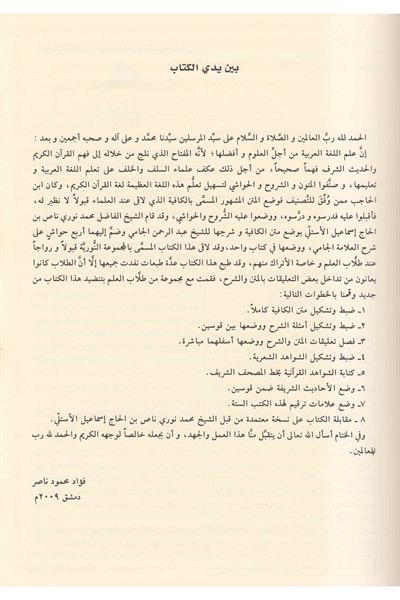 بين يدي الكتاب
الحمد لله ربِّ العالمين و الصَّلاة و السَّلام على سيِّد المرسلين سيِّدنا محمَّد و على آله و صحبه أجمعين و بعد :
إنَّ علم اللغة العربية من أجلِّ العلوم و أفضلها ؛ لأنَّه المفتاح الذي نلج من خلاله إلى فهم القرآن الكريم
والحديث الشرف فهماً صحيحاً، من أجل ذلك عكف علماء السلف والخلف على تعلم اللغة العربية و
تعليمها، و صنَّفوا المتون و الشروح و الحواشي لتسهيل تعلُّم هذه اللغة العظيمة لغة القرآن الكريم، وكان ابن
الحاجب ممن وُفِّقَ للتَّصنيف فوضع المتن المشهور المسمَّى بالكافية الذي لاقى عند العلماء قبولاً لا نظير له،
فأقبلوا عليه فدرسوه و درَّسوه، ووضعوا عليه الشُّروح والحواشي، وقد قام الشيخ الفاضل محمد نوري ناص بن
الحاج إسماعيل الأستلّي بوضع متن الكافية و شرحها للشيخ عبد الرحمن الجامي وضمَّ إليهما أربع حواش على
شرح العلامة الجامي، ووضعها في كتاب واحد، وقد لاقى هذا الكتاب المسمَّى بالمجموعة النُّوريَّة قبولاً و رواجاً
عند طلَّاب العلم و خاصة الأتراك منهم، وقد طبع هذا الكتاب عدَّة طبعات نفدت جميعها إلَّا أنَّ الطلاب كانوا
يعانون من تداخل بعض التعليقات بالمتن والشرح، فقمت مع مجموعة من طلَّاب العلم بتنضيد هذا الكتاب من
جديد وقمنا بالخطوات التالية:
١- ضبط وتشكيل متن الكافية كاملاً.
٢- ضبط و تشكيل أمثلة الشرح ووضعها بين قوسين.
٣- فصل تعليقات المتن والشرح ووضعها أسفلهما مباشرة.
٤- ضبط وتشكيل الشواهد الشعرية.
٥- كتابة الشواهد القرآنية بخط المصحف الشريف.
٦- وضع الأحاديث الشريفة ضمن قوسين.
٧- وضع علامات ترقيم لهذه الكتب الستة.
٨ - مقابلة الكتاب على نسخة معتمدة من قبل الشيخ محمد نوري ناص بن الحاج إسماعيل الأستلّي.
وفي الختام أسأل الله تعالى أن يتقبَّل منَّا هذا العمل والجهد، و أن يجعله خالصاً لوجهه الكريم والحمد لله رب
العالمين.
فؤاد محمود ناصر
دمشق ٢٠٠٩م